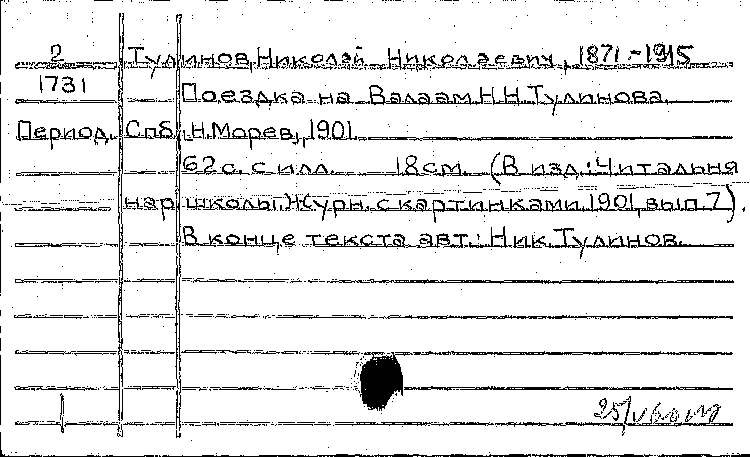 2 Тулинов, Николай Николаевич, 1871-1915
1731 Поездка на Валаам Н.Н.Тулинова.
Период. Спб., Н.Морев, 1901.
62 с. с илл. 18 см. (В изд.: Читальня
нар. школы. Журн. с картинками. 1901, вып. 7).
В конце текста авт.: Ник. Тулинов.
25/